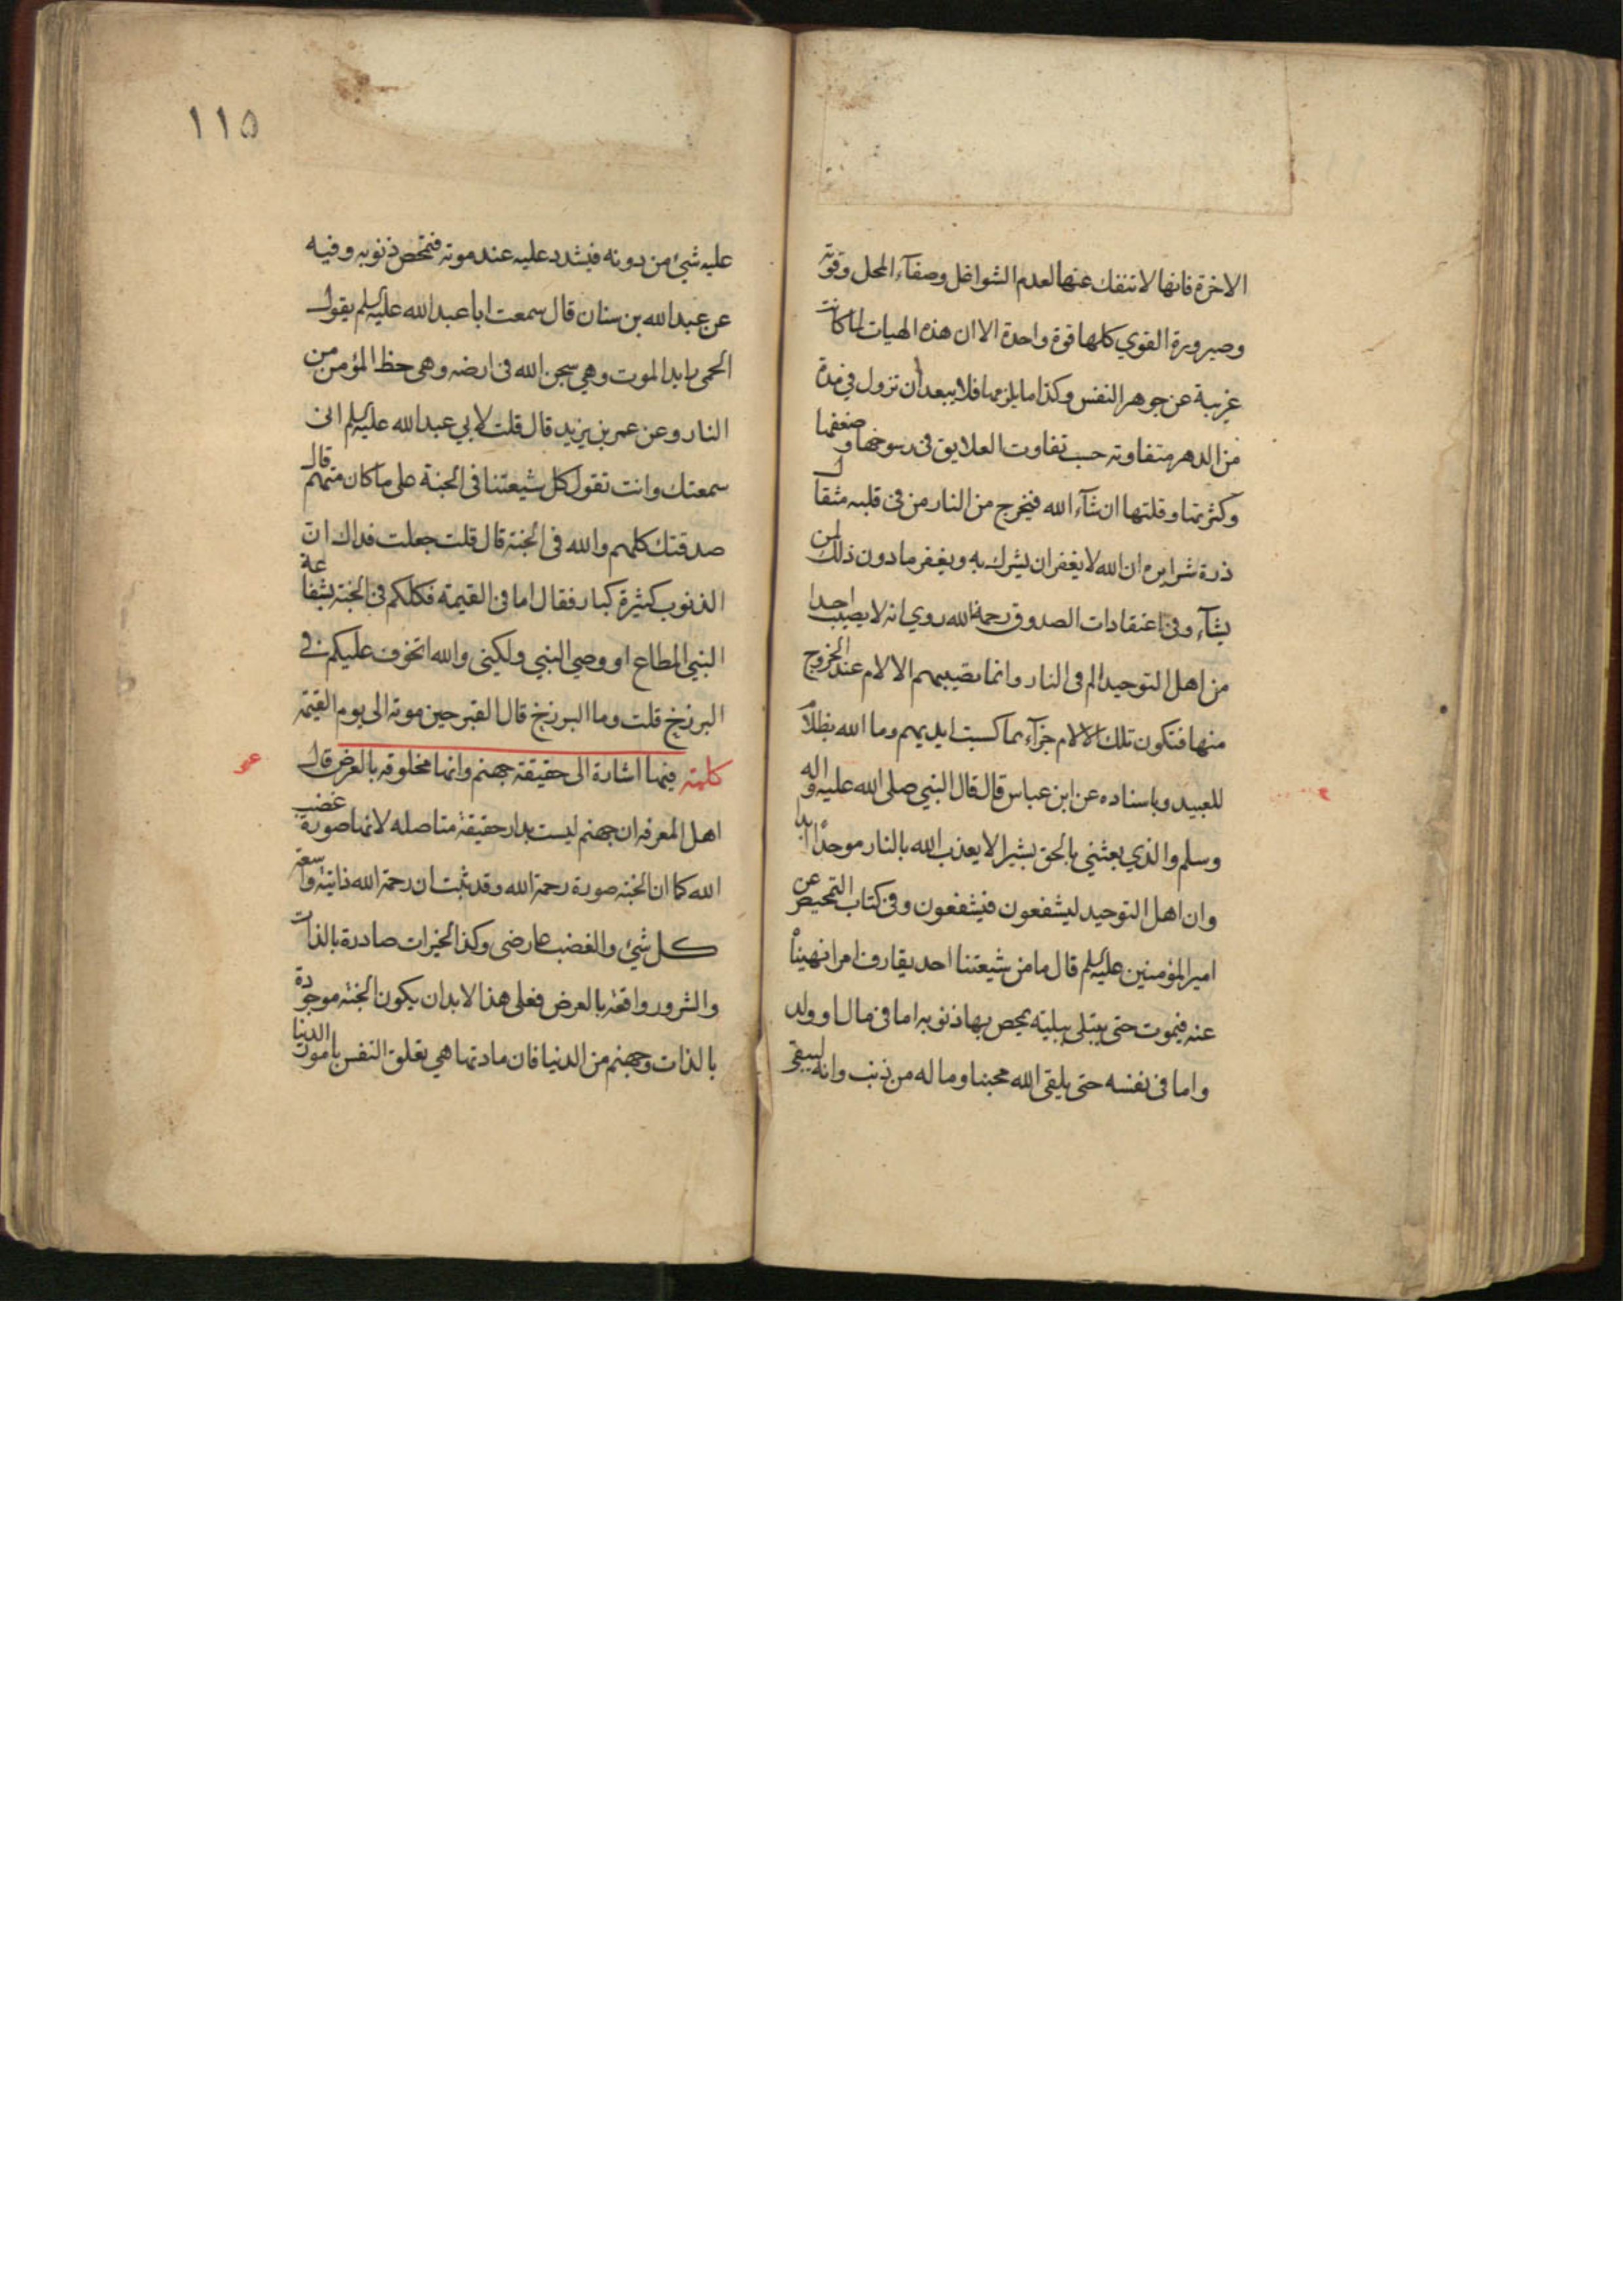 الاخرة فانها لا تنفك عنها لعدم الشواغل وصفآء المحل وقوته
وصيرورة القوي كلها قوة واحدة الا ان هذه الهيات لما كانت
غريبة عن جوهر النفس وكذا ما يلزمها فلا يبعد أن تزول في مدة
من الدهر متفاوته حسب تفاوت العلايق فى رسوخها وضعفها
وكثرتها وقلتها ان شآء الله فيخرج من النار من فى قلبه مثقال
ذرة شرا يره ان الله لا يغفر ان يشرك به ويغفر ما دون ذلك لمن
يشآء وفى اعتقادات الصدوق رحمة الله روي انه لا يصيب احدا
من اهل التوحيد الم فى النار وانما تصيبهم الالام عند الخروج
منها فتكون تلك الالام جزآء بما كسبت ايديهم وما الله بظلام
للعبيد وباسناده عن ابن عباس قال قال النبي صلى الله عليه واله
وسلم والذي بعثني بالحق بشيرا لا يعذب الله بالنار موحدا ابدا
وان اهل التوحيد ليشفعون فيشفعون وفى كتاب التمحيص عن
امير المؤمنين عليه السلم قال ما من شيعتنا احد يقارف امرا نهيناه
عنه فيموت حتى يبتلى ببليته تمحص بها ذنوبه اما فى مال او ولد
واما فى نفسه حتى يلقى الله محبنا وما له من ذنب وانه ليبقى
١١٥
عليه شيئ من دونه فيشدد عليه عند موته فتمحص ذنوبه وفيه
عن عبد الله بن سنان قال سمعت ابا عبد الله عليه السلم يقول
الحمى رايد الموت وهي سجن الله فى ارضه وهى حظ المؤمن من
النار وعن عمر بن يزيد قال قلت لابي عبد الله عليه السلم انى
سمعتك وانت تقول كل شيعتنا فى الجنة على ما كان منهم قال
صدقتك كلهم والله فى الجنة قال قلت جعلت فداك ان
الذنوب كثيرة كبار فقال اما فى القيمة فكلكم فى الجنة بشفاعة
النبي المطاع او وصي النبي ولكني والله اتخوف عليكم فى
البرزخ قلت وما البرزخ قال القبر حين موته الى يوم القيمة
كلمة فيها اشارة الى حقيقة جهنم وانها مخلوقه بالعرض قال
اهل المعرفه ان جهنم ليست بدار حقيقة متاصله لانها صورة غضب
الله كما ان الجنة صورة رحمة الله وقد ثبت ان رحمة الله ذاتية واسعة
كل شيئ والغضب عارضى وكذا الخيرات صادرة بالذات
والشرور واقعة بالعرض فعلى هذا لابد ان يكون الجنة موجودة
بالذات وجهنم من الدنيا فان مادتها هي تعلق النفس بامور الدنيا